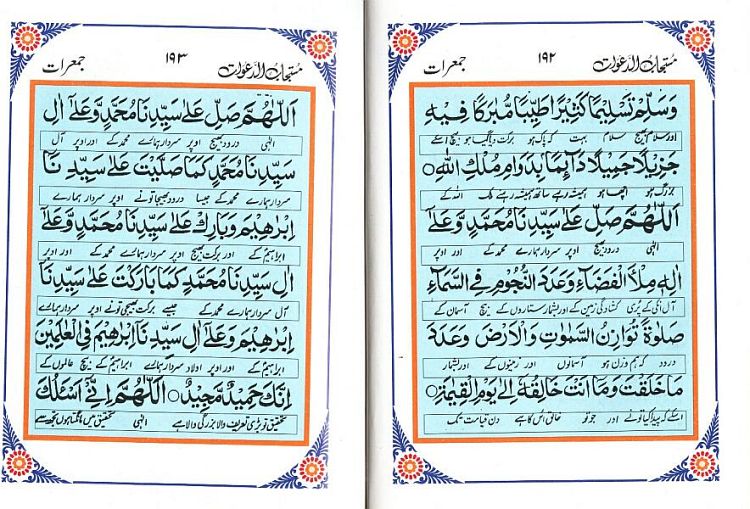 مستجاب الدعوات ۱۹۲ جمعرات
وَسَلِّمْ تَسْلِيْمًا كَثِيْرًا طَيِّبًا مُّبَرَكًا فِيْهِ
اور سلام بھیج سلام بہت کہ پاک ہو برکت دیا گیا ہو بیچ اسکے
جَزِيْلًا جَمِيْلًا دَآئِمًا بِدَوَامِ مُلْكِ اللهِ ۝
بزرگ ہو اچھا ہو ہمیشہ رہے ساتھ ہمیشہ رہنے ملک اللہ کے
اَللّٰهُمَّ صَلِّ عَلٰى سَيِّدِنَا مُحَمَّدٍ وَّعَلٰٓى
الٰہی درود بھیج اوپر سردار ہمارے محمد کے اور اوپر
اٰلِهٖ مِلْأَ الْفَضَآءِ وَعَدَدَ النُّجُوْمِ فِى السَّمَآءِ
آل انکی کے پُری کشادگی زمین کے اور بشمار ستاروں کے بیچ آسمان کے
صَلٰوةً تُوَازِنُ السَّمٰوٰتِ وَالْاَرْضَ وَعَدَدَ
درود کہ ہم وزن ہو آسمانوں اور زمینوں کے اور بشمار
مَا خَلَقْتَ وَمَا اَنْتَ خَالِقُهٗ اِلٰى يَوْمِ الْقِيٰمَةِ ۝
اسکے کہ پیدا کیا تونے اور جو تو خالق اُس کا ہے دن قیامت تک
مستجاب الدعوات ۱۹۳ جمعرات
اَللّٰهُمَّ صَلِّ عَلٰى سَيِّدِنَا مُحَمَّدٍ وَّعَلٰٓى اٰلِ
الٰہی درود بھیج اوپر سردار ہمارے محمد کے اور اوپر آل
سَيِّدِنَا مُحَمَّدٍ كَمَا صَلَّيْتَ عَلٰى سَيِّدِنَا
سردار ہمارے محمد کے جیسا درود بھیجا تونے اوپر سردار ہمارے
اِبْرٰهِيْمَ وَبَارِكْ عَلٰى سَيِّدِنَا مُحَمَّدٍ وَّعَلٰٓى
ابراہیم کے اور برکت بھیج اوپر سردار ہمارے محمد کے اور اوپر
اٰلِ سَيِّدِنَا مُحَمَّدٍ كَمَا بَارَكْتَ عَلٰى سَيِّدِنَا
آل سردار ہمارے محمد کے جیسے برکت بھیجی تونے اوپر سردار ہمارے
اِبْرٰهِيْمَ وَعَلٰٓى اٰلِ سَيِّدِنَا اِبْرٰهِيْمَ فِى الْعٰلَمِيْنَ
ابراہیم کے اور اوپر اولاد سردار ہمارے ابراہیم کے بیچ عالموں کے
اِنَّكَ حَمِيْدٌ مَّجِيْدٌ ۝ اَللّٰهُمَّ اِنِّىْٓ اَسْئَلُكَ
تحقیق تو بڑی تعریف والا بزرگی والا ہے الٰہی تحقیق میں مانگتا ہوں تجھ سے